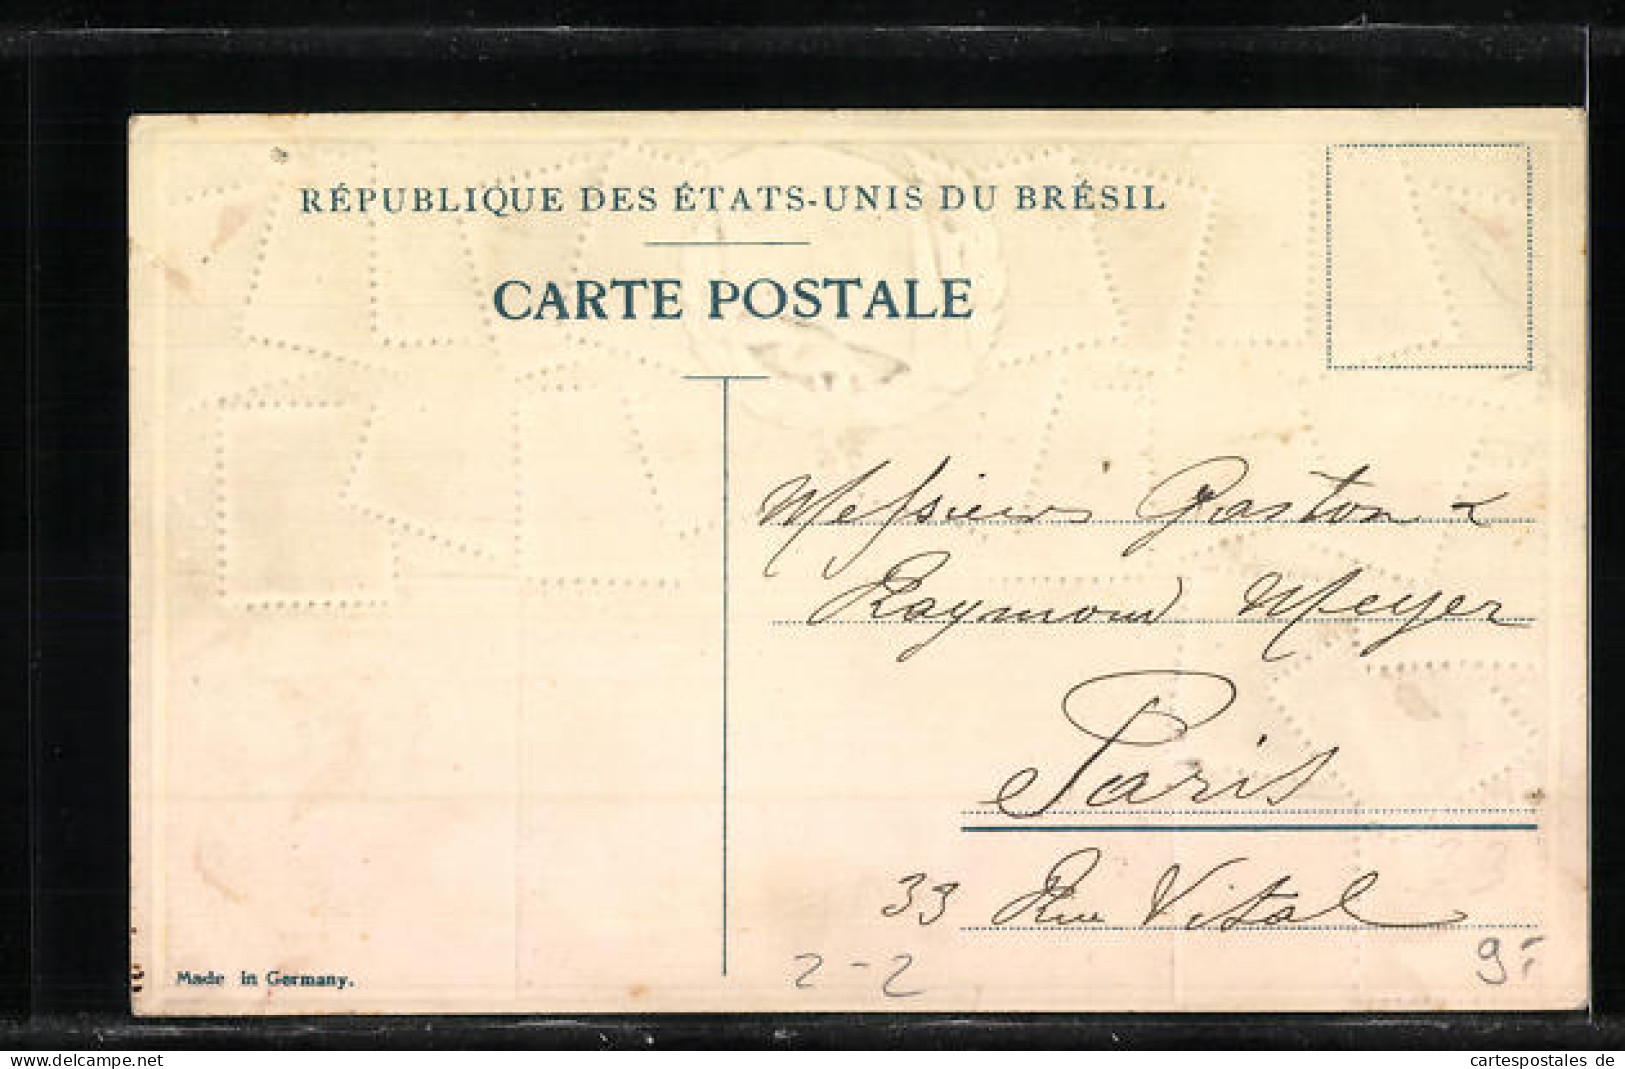 RÉPUBLIQUE DES ÉTATS-UNIS DU BRÉSIL
CARTE POSTALE
Messieurs Gaston &
Raymond Meyer
Paris
33 Rue Vital
2-2
9,-
Made in Germany.
delcampe.net
cartespostales de